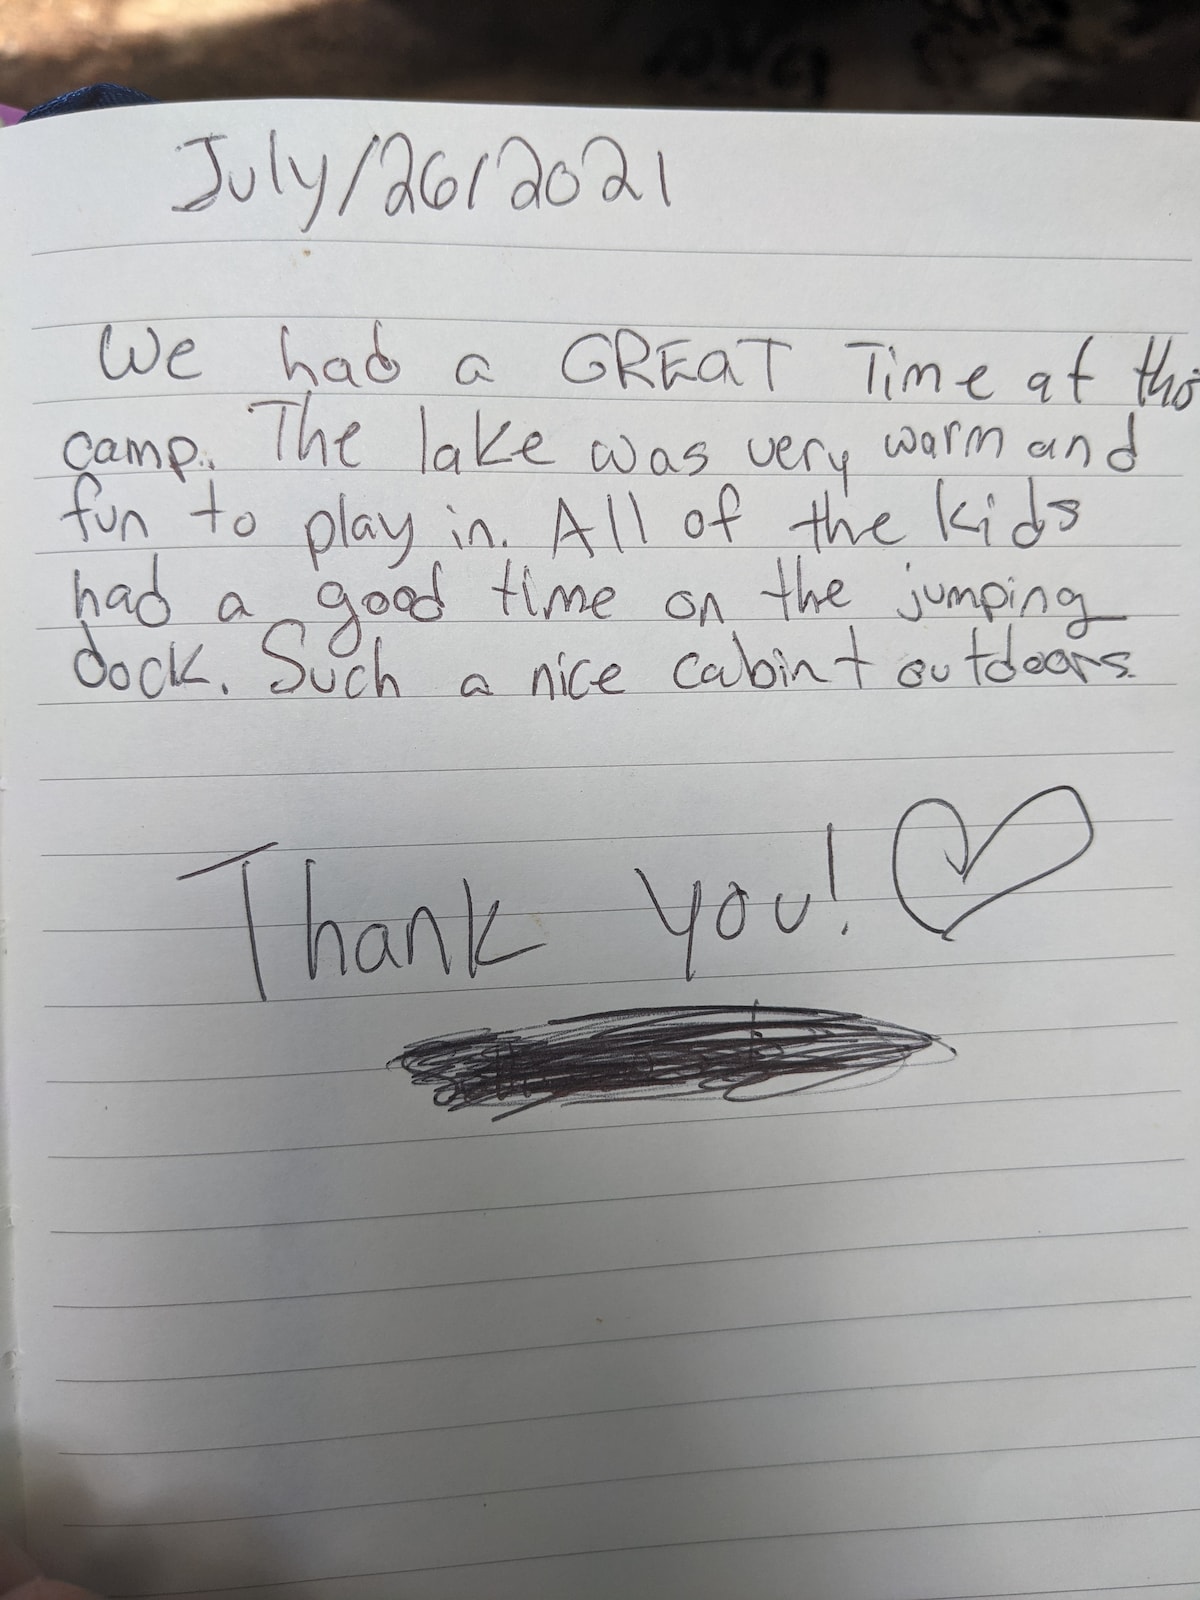 July/26/2021
We had a GREAT Time at this
camp. The lake was very warm and
fun to play in. All of the kids
had a good time on the jumping
dock. Such a nice cabin + outdoors.
Thank you!